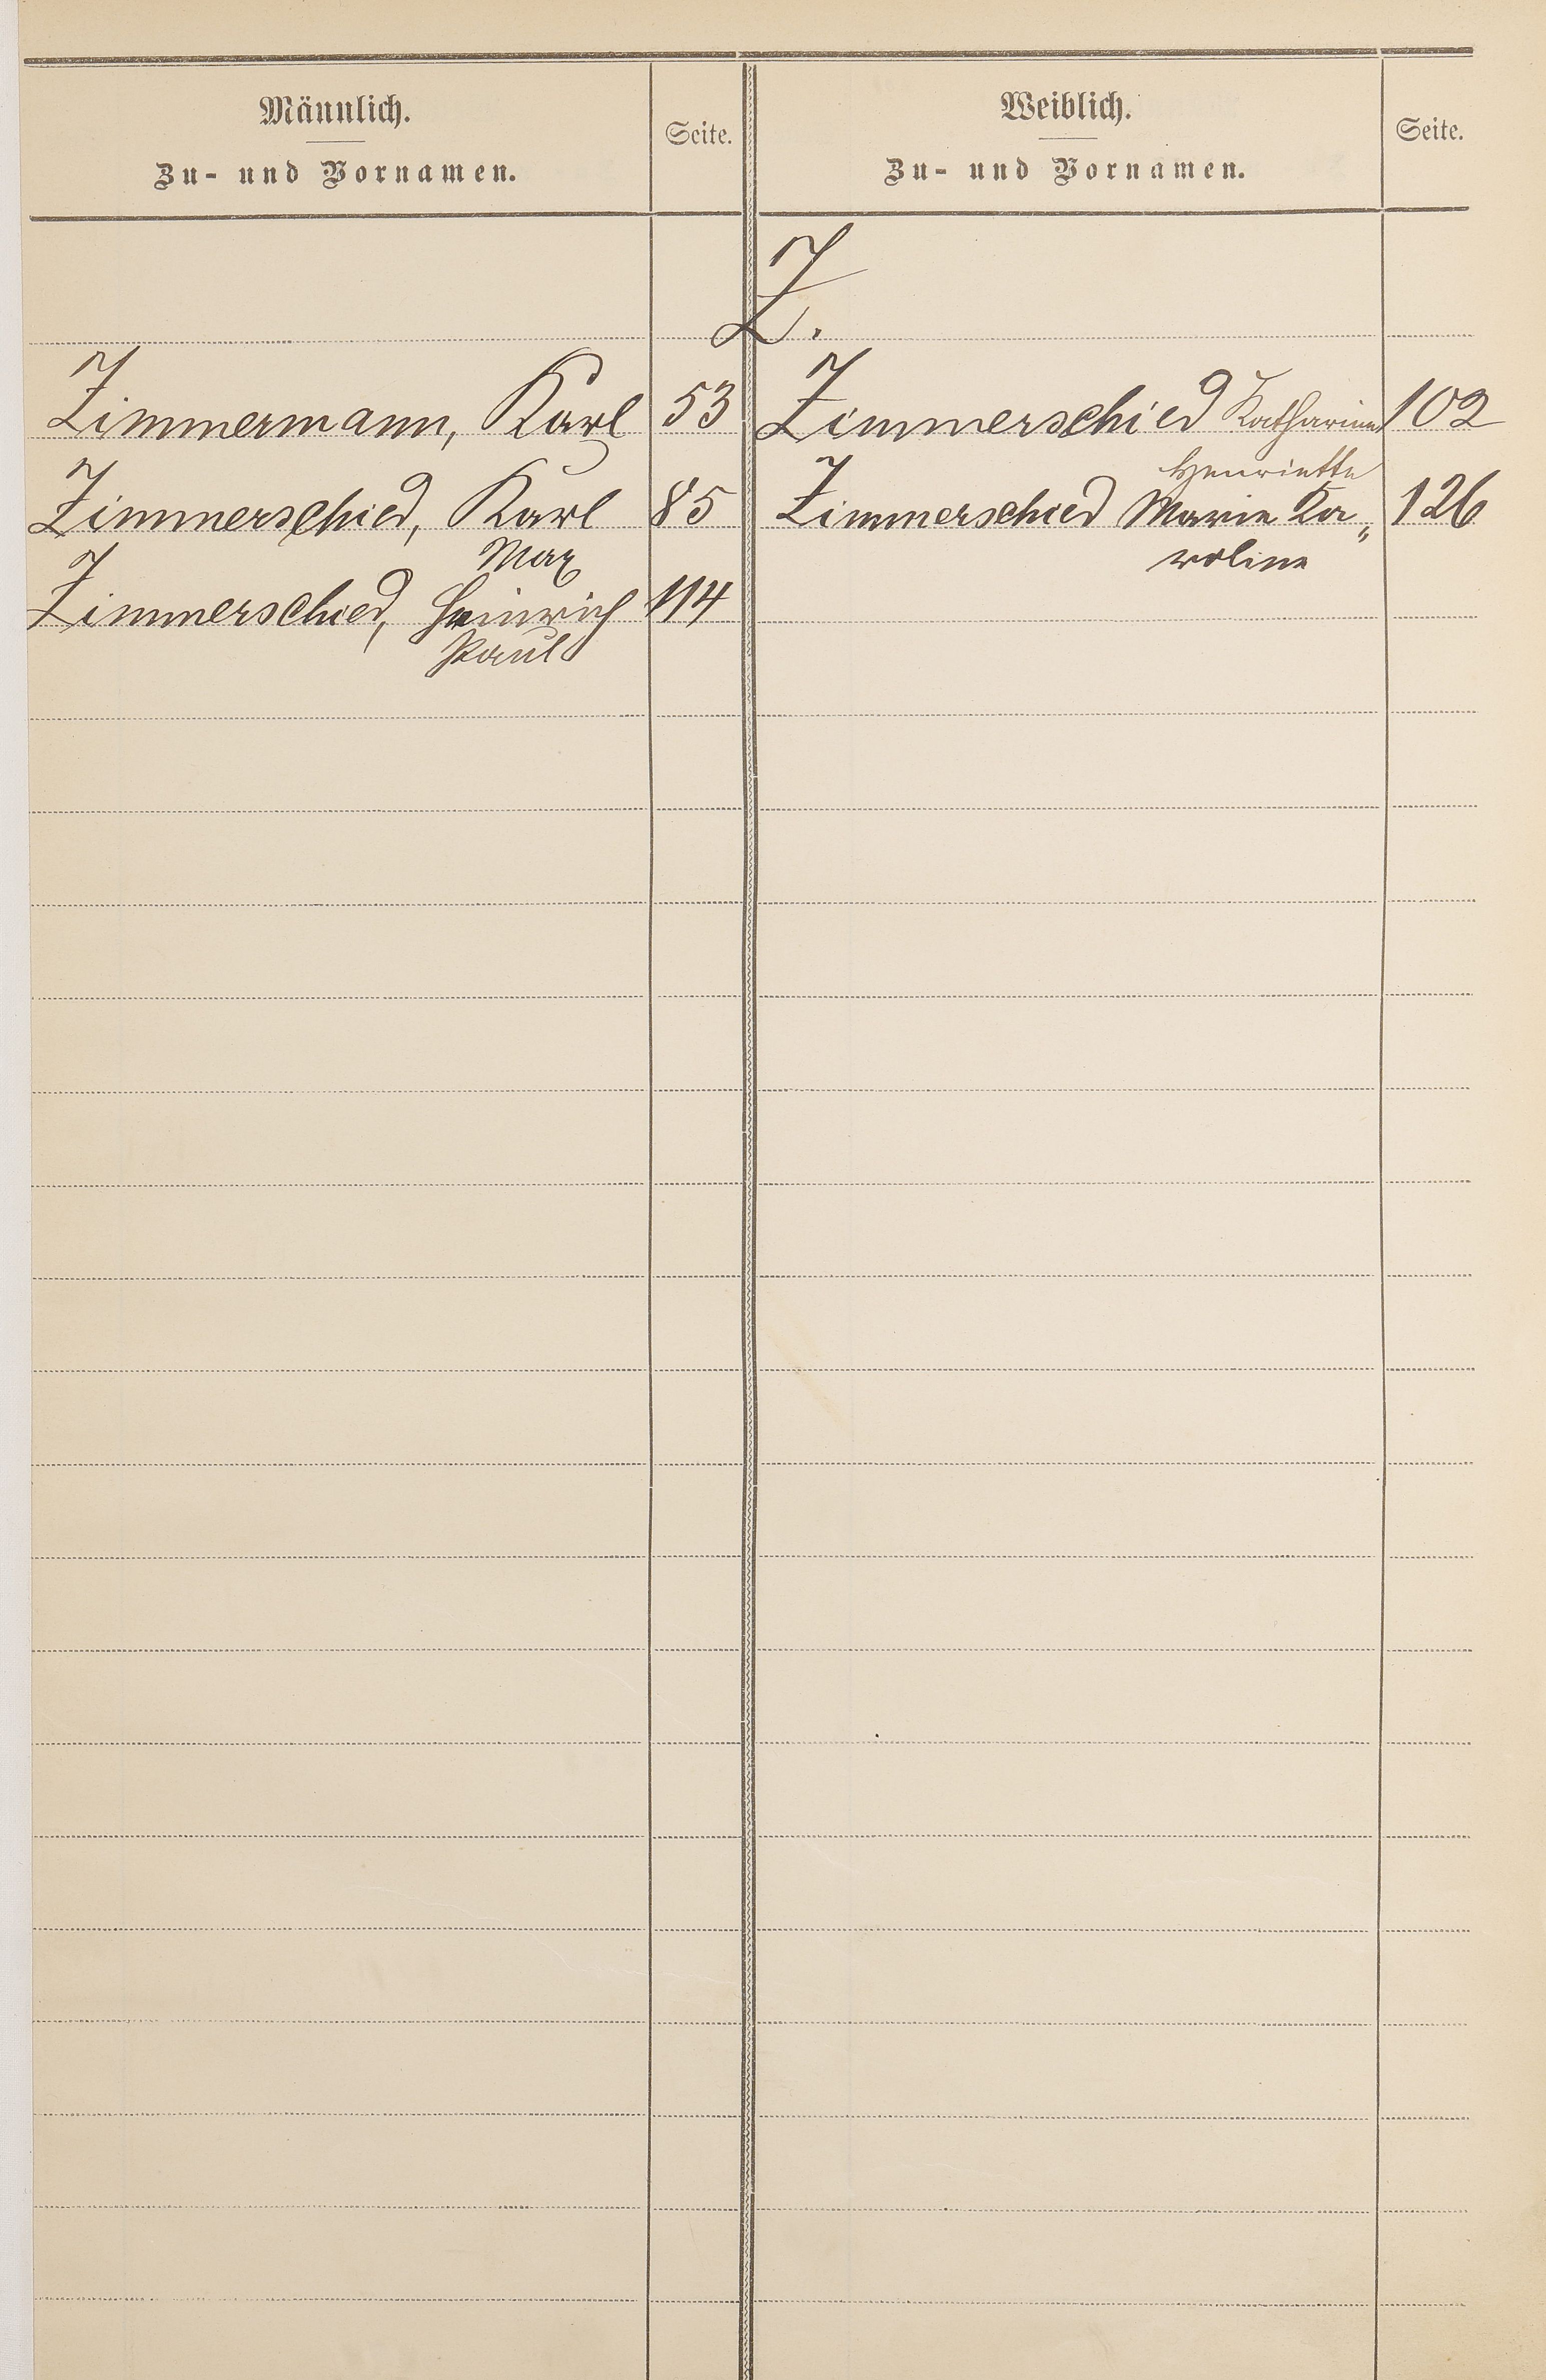 Männlich.
Zu- und Vornamen.
Seite.
Weiblich.
Zu- und Vornamen.
Seite.
Z.
Zimmermann, Karl 53
Zimmerschied, Karl 85
Max
Zimmerschied, Heinrich 114
Paul
Zimmerschied Katharina 102
Henriette
Zimmerschied Marie Ka„ 126
roline